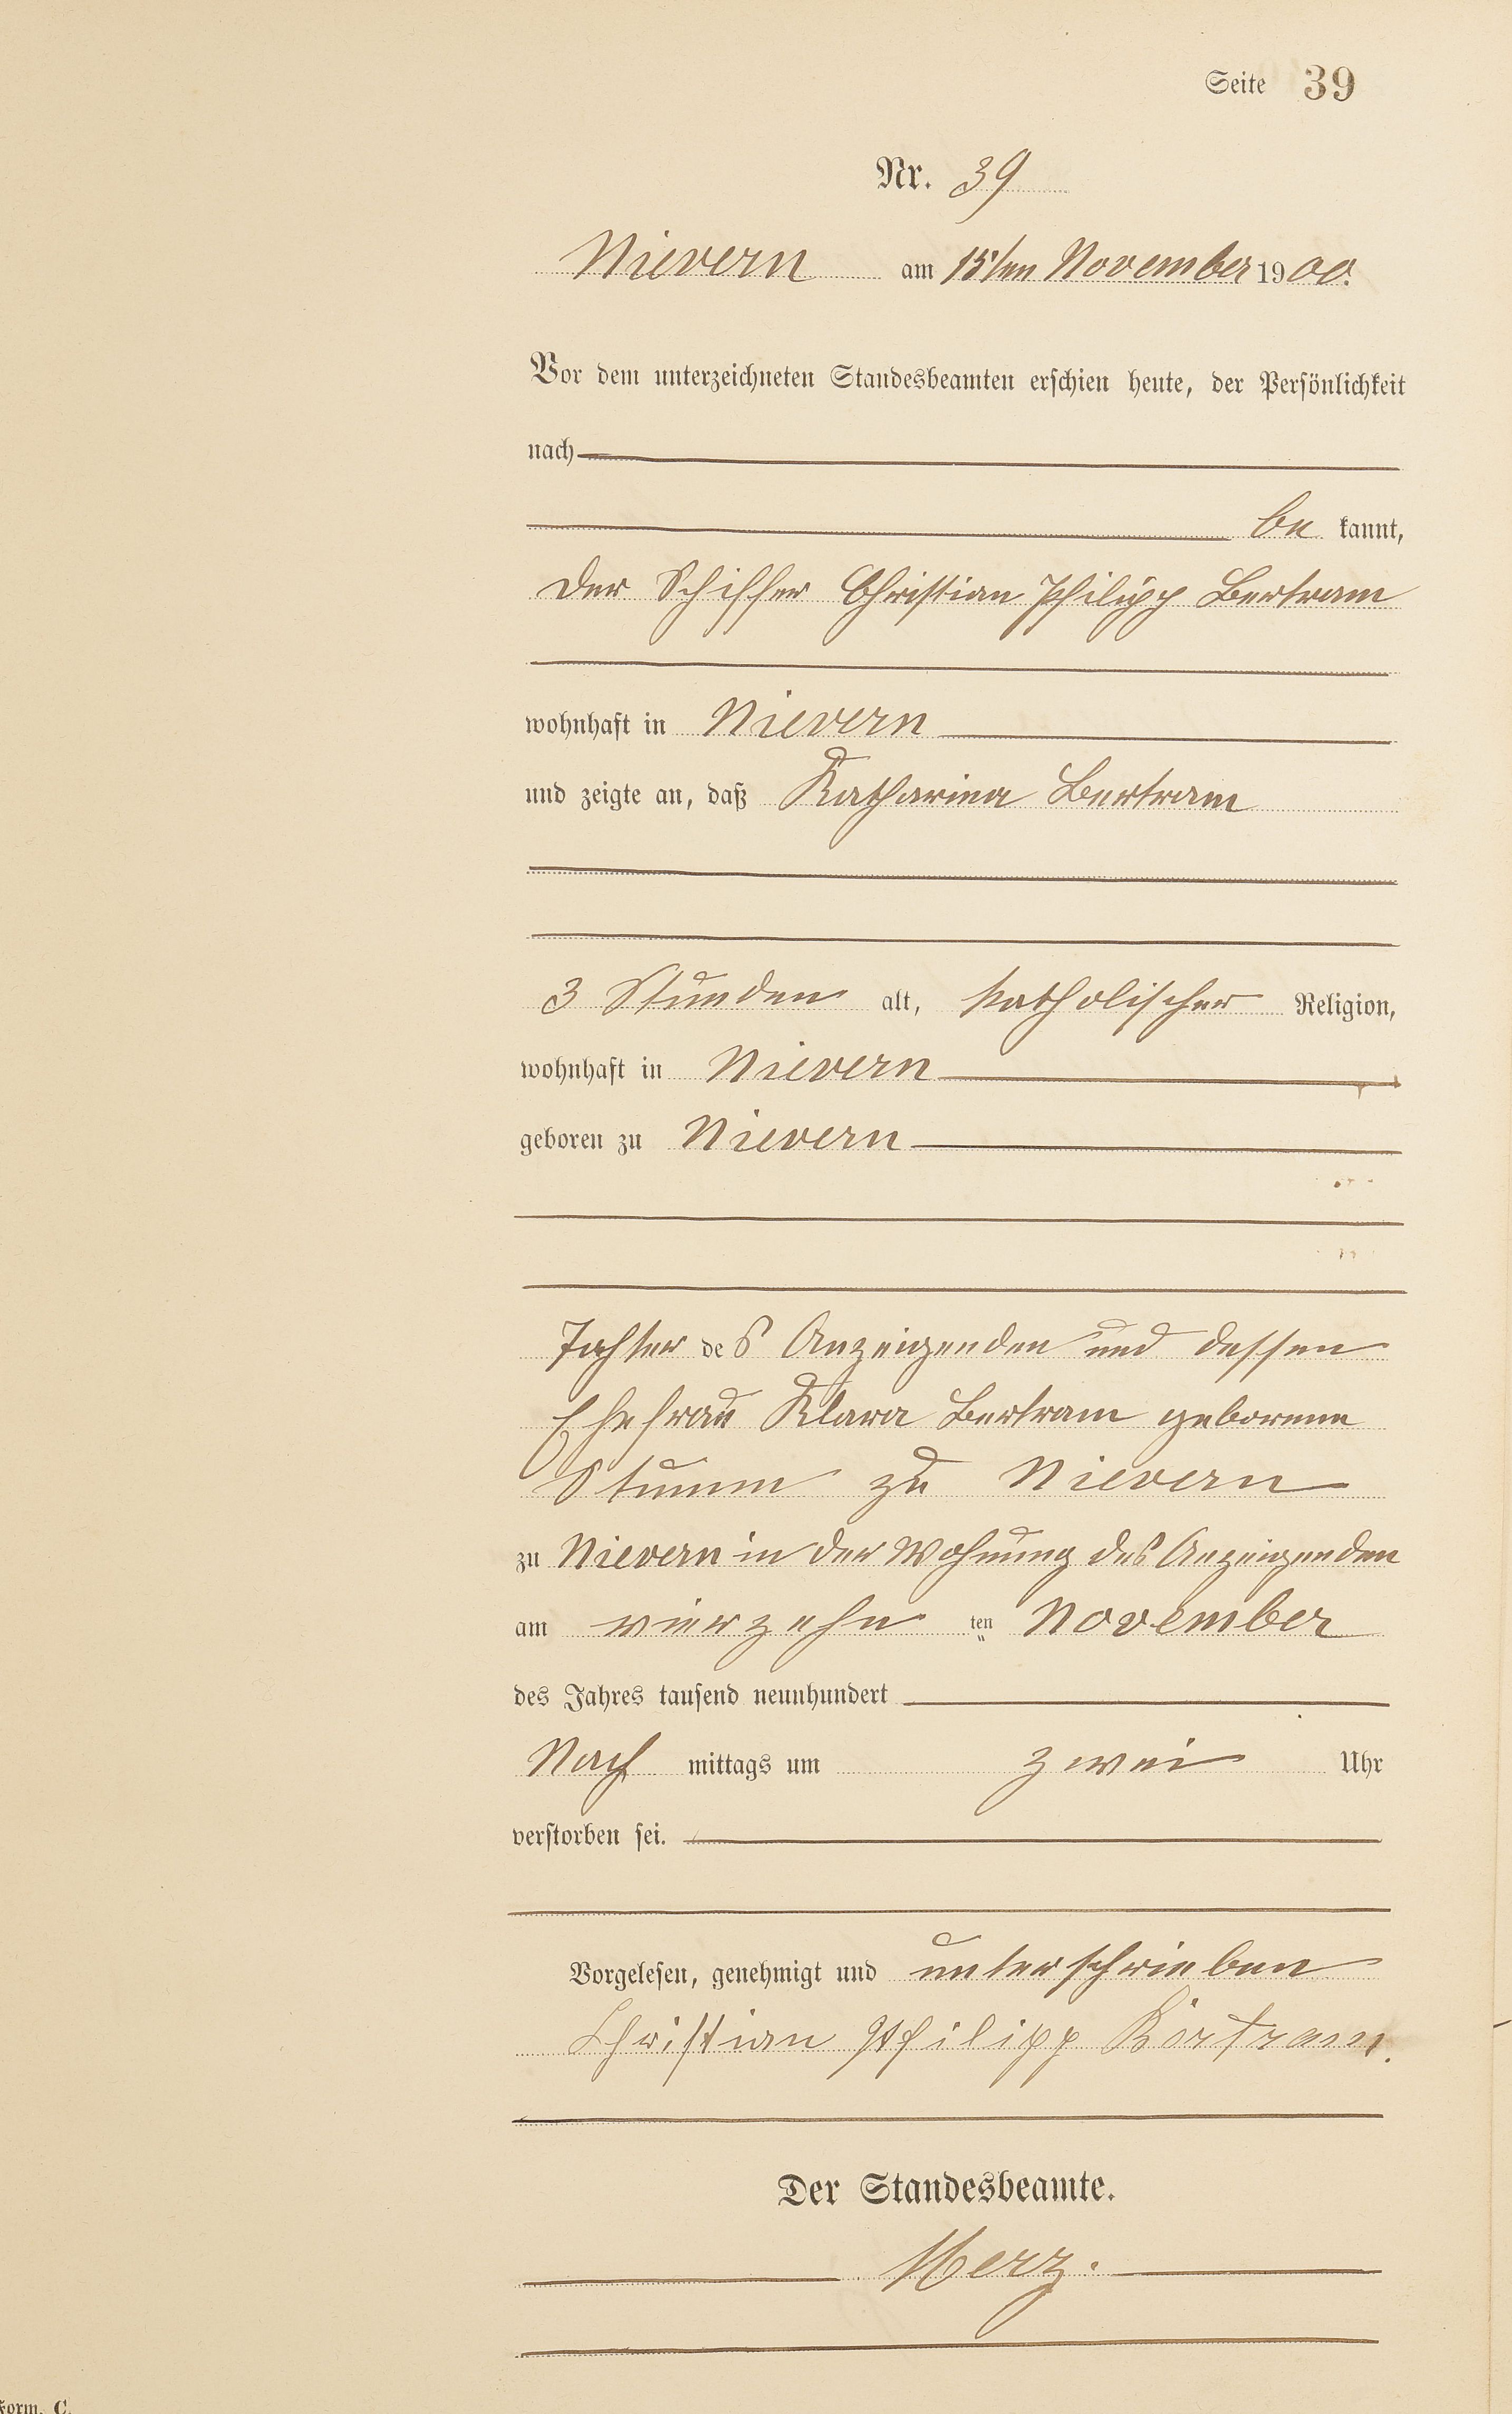 Seite 39
Nr. 39
Nievern am 15ten November 1900.
Vor dem unterzeichneten Standesbeamten erschien heute, der Persönlichkeit
nach
be kannt,
der Schiffer Christian Philipp Bertram
wohnhaft in Nievern
und zeigte an, daß Katharina Bertram
3 Stunden alt, katholischer Religion,
wohnhaft in Nievern
geboren zu Nievern
Tochter des Anzeigenden und dessen
Ehefrau Klara Bertram geborene
Stumm zu Nievern
zu Nievern in der Wohnung des Anzeigenden
am vierzehn ten November
des Jahres tausend neunhundert
Nach mittags um zwei Uhr
verstorben sei.
Vorgelesen, genehmigt und unterschrieben
Christian Philipp Bertram.
Der Standesbeamte.
Merz.
Form. C.